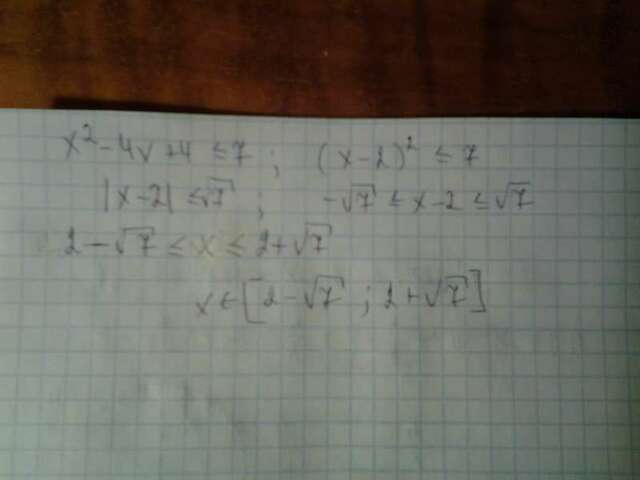 x² - 4x + 4 ≤ 7 ; (x - 2)² ≤ 7
|x - 2| ≤ √7 ; -√7 ≤ x - 2 ≤ √7
2 - √7 ≤ x ≤ 2 + √7
x ∈ [2 - √7 ; 2 + √7]